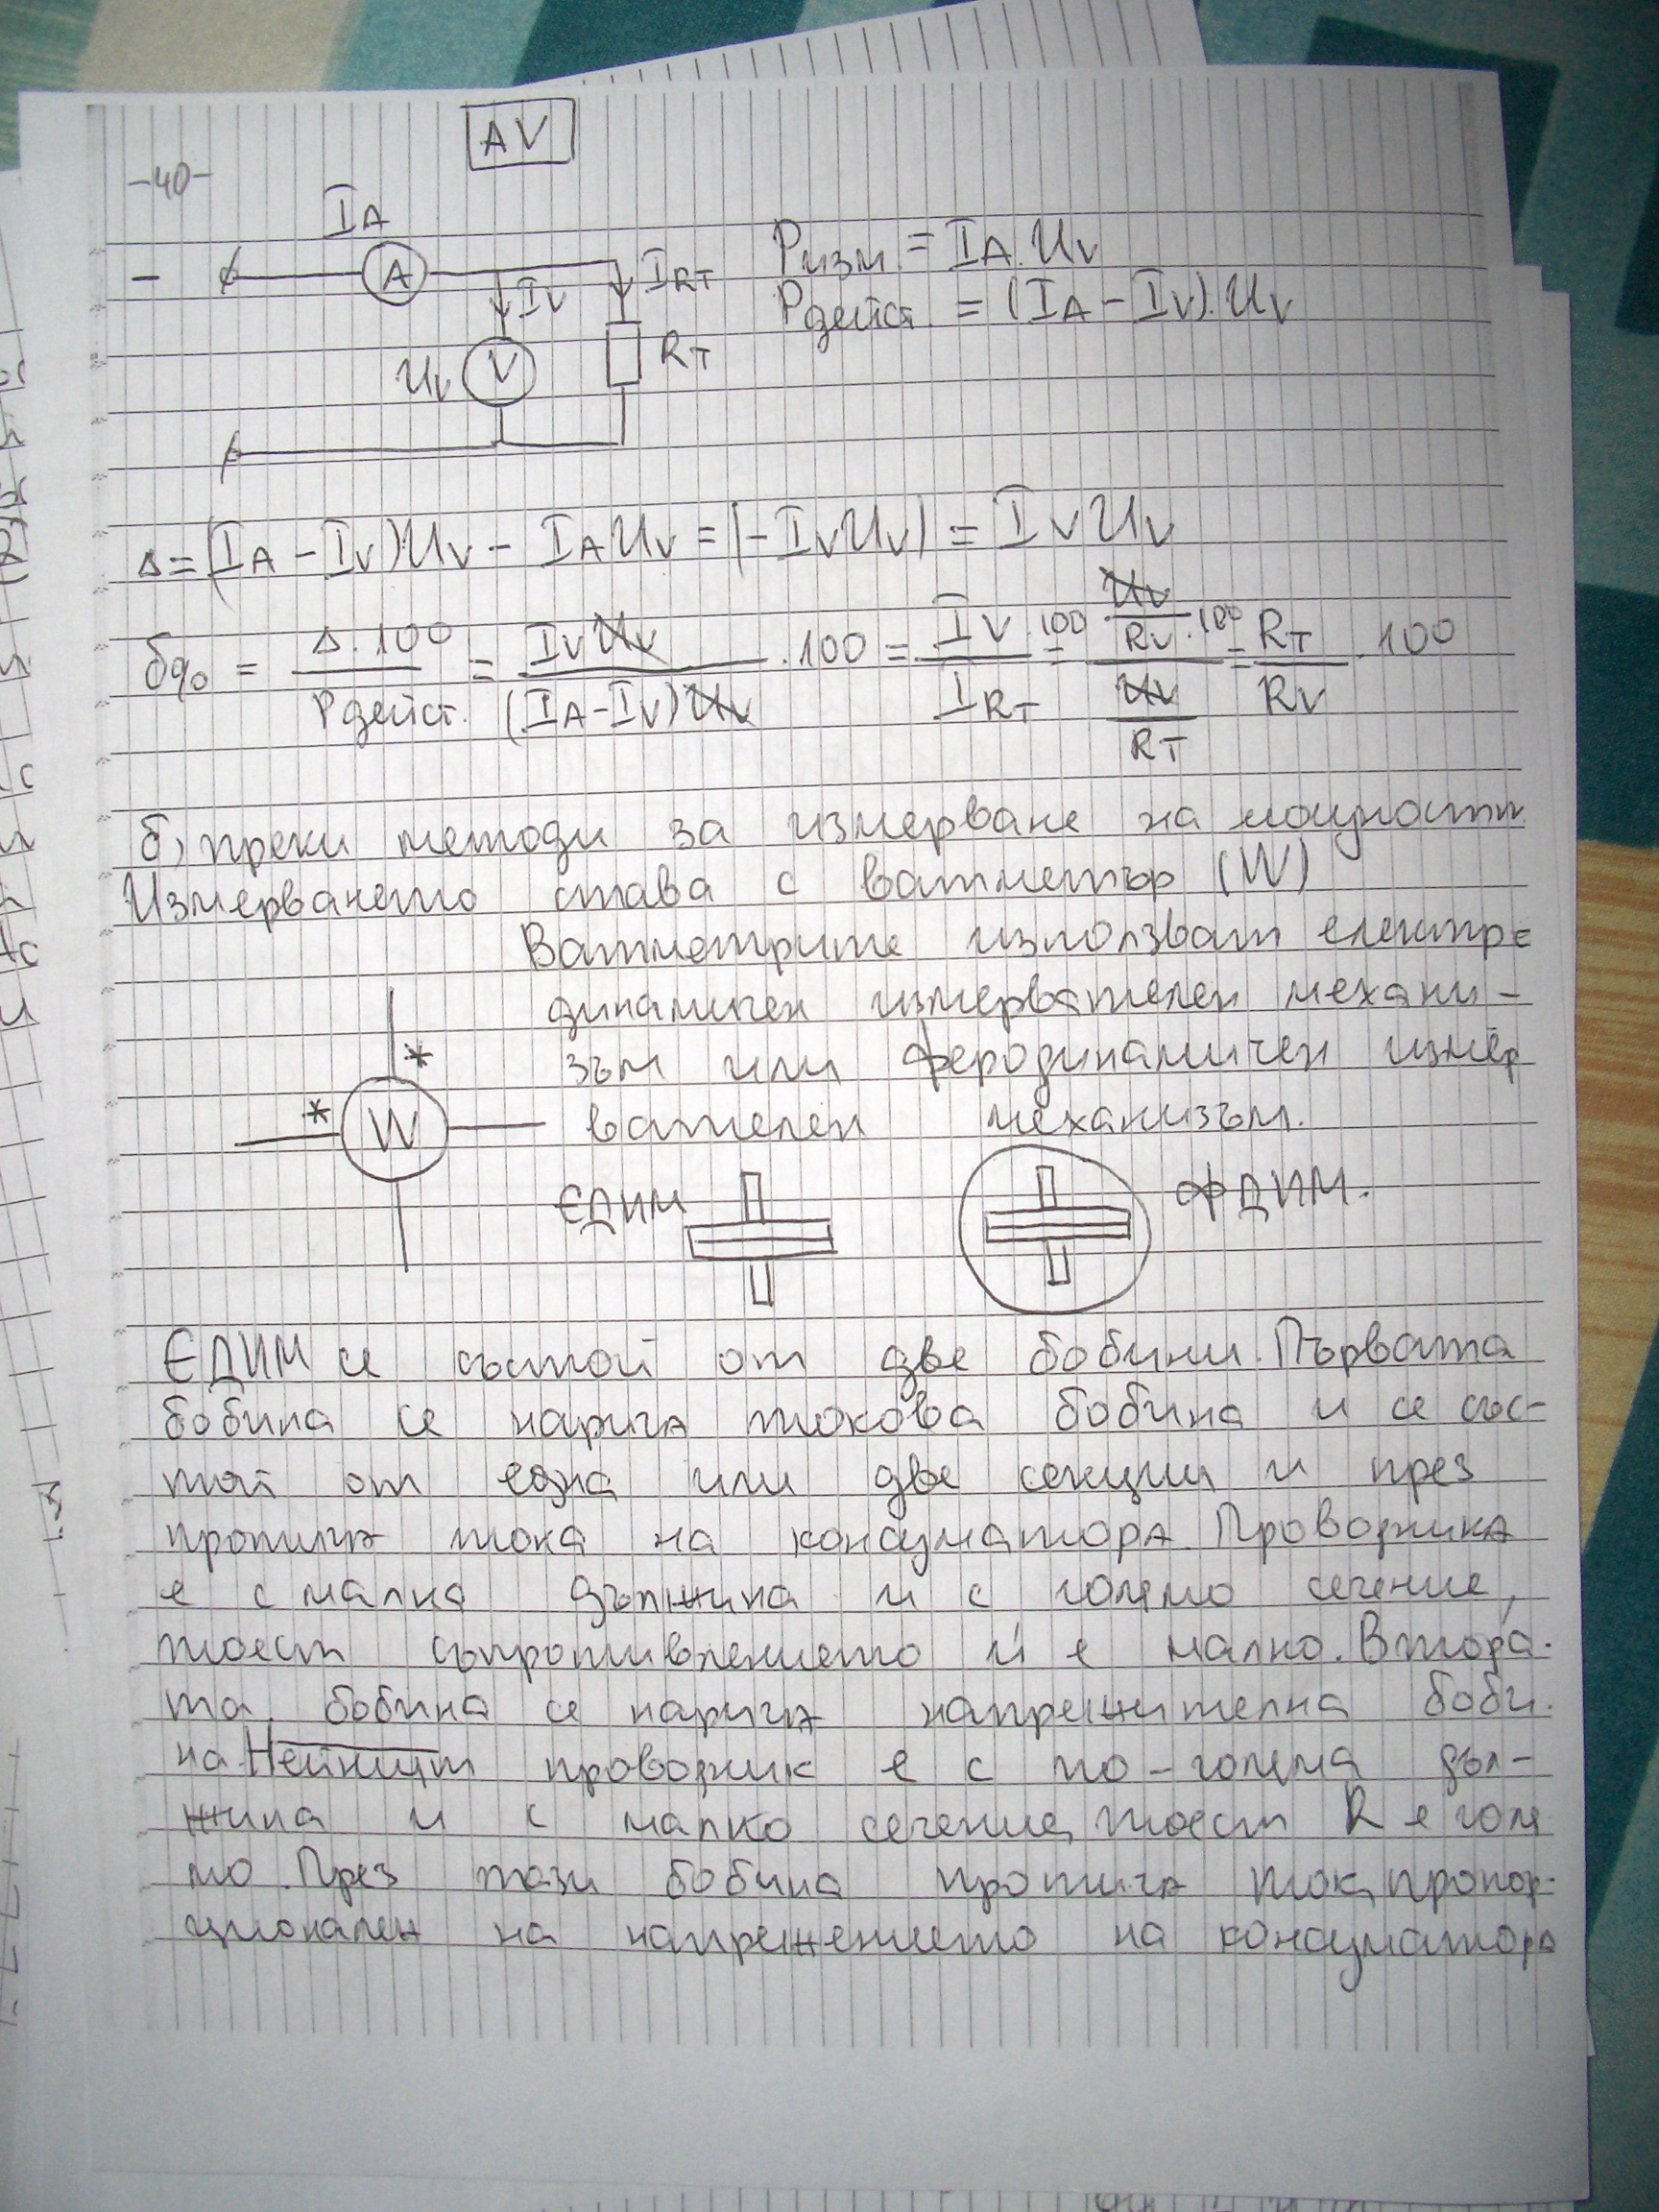 AV
-40-
IA
- A IV IRT Pизм. = IA.UV
Pдейст. = (IA - IV).UV
UV V RT
Δ = (IA - IV)UV - IAUV = |-IVUV| = IVUV
δ% = Δ.100 / Pдейст. = IVUV / (IA-IV)UV .100 = IV / IRT .100 = UV/RV / UV/RT .100 = RT / RV .100
б) преки методи за измерване на мощността
Измерването става с ватметър (W)
Ватметрите използват електро
динамичен измервателен механи-
зъм или феродинамичен измер
* * W вателен механизъм.
ЕДИМ ФДИМ.
ЕДИМ се състой от две бобини. Първата
бобина се нарича токова бобина и се със-
той от една или две секции и през
протича тока на консуматора. Проводника
е с малка дължина и с голямо сечение,
тоест съпротивлението и́ е малко. Втора-
та бобина се нарича напрежителна боби-
на. Нейният проводник е с по-голяма дъл-
жина и с малко сечение, тоест R е голя
мо. През тази бобина протича ток, пропор-
ционален на напрежението на консуматора